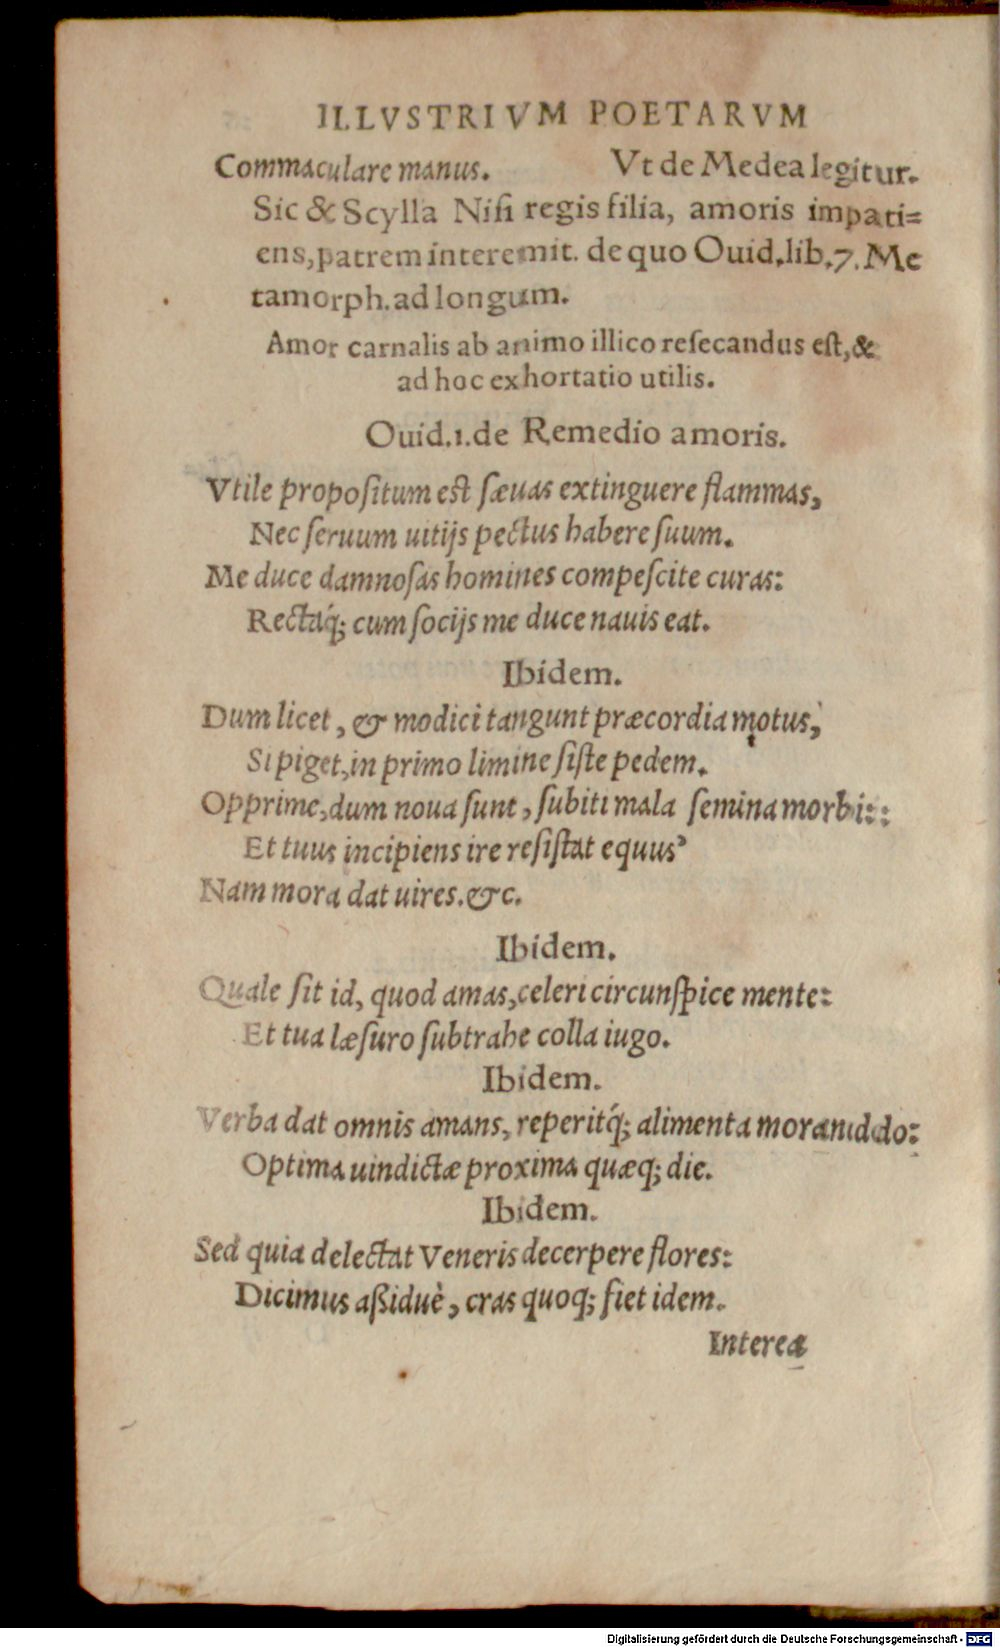 ILLVSTRIVM POETARVM
Commaculare manus. Vt de Medea legitur.
Sic & Scylla Niſi regis filia, amoris impati=
ens, patrem interemit. de quo Ouid. lib. 7. Me
tamorph. ad longum.
Amor carnalis ab animo illico reſecandus eſt, &
ad hoc exhortatio utilis.
Ouid. 1. de Remedio amoris.
Vtile propoſitum eſt ſæuas extinguere flammas,
Nec ſeruum uitijs pectus habere ſuum.
Me duce damnoſas homines compeſcite curas:
Rectaq́; cum ſocijs me duce nauis eat.
Ibidem.
Dum licet, & modici tangunt præcordia motus,
Si piget, in primo limine ſiſte pedem.
Opprime, dum noua ſunt, ſubiti mala ſemina morbi:
Et tuus incipiens ire reſiſtat equus
Nam mora dat uires. &c.
Ibidem.
Quale ſit id, quod amas, celeri circunſpice mente:
Et tua læſuro ſubtrahe colla iugo.
Ibidem.
Verba dat omnis amans, reperitq́; alimenta morando:
Optima uindictæ proxima quæq; die.
Ibidem.
Sed quia delectat Veneris decerpere flores:
Dicimus aßiduè, cras quoq; fiet idem.
Interea
Digitalisierung gefördert durch die Deutsche Forschungsgemeinschaft - DFG